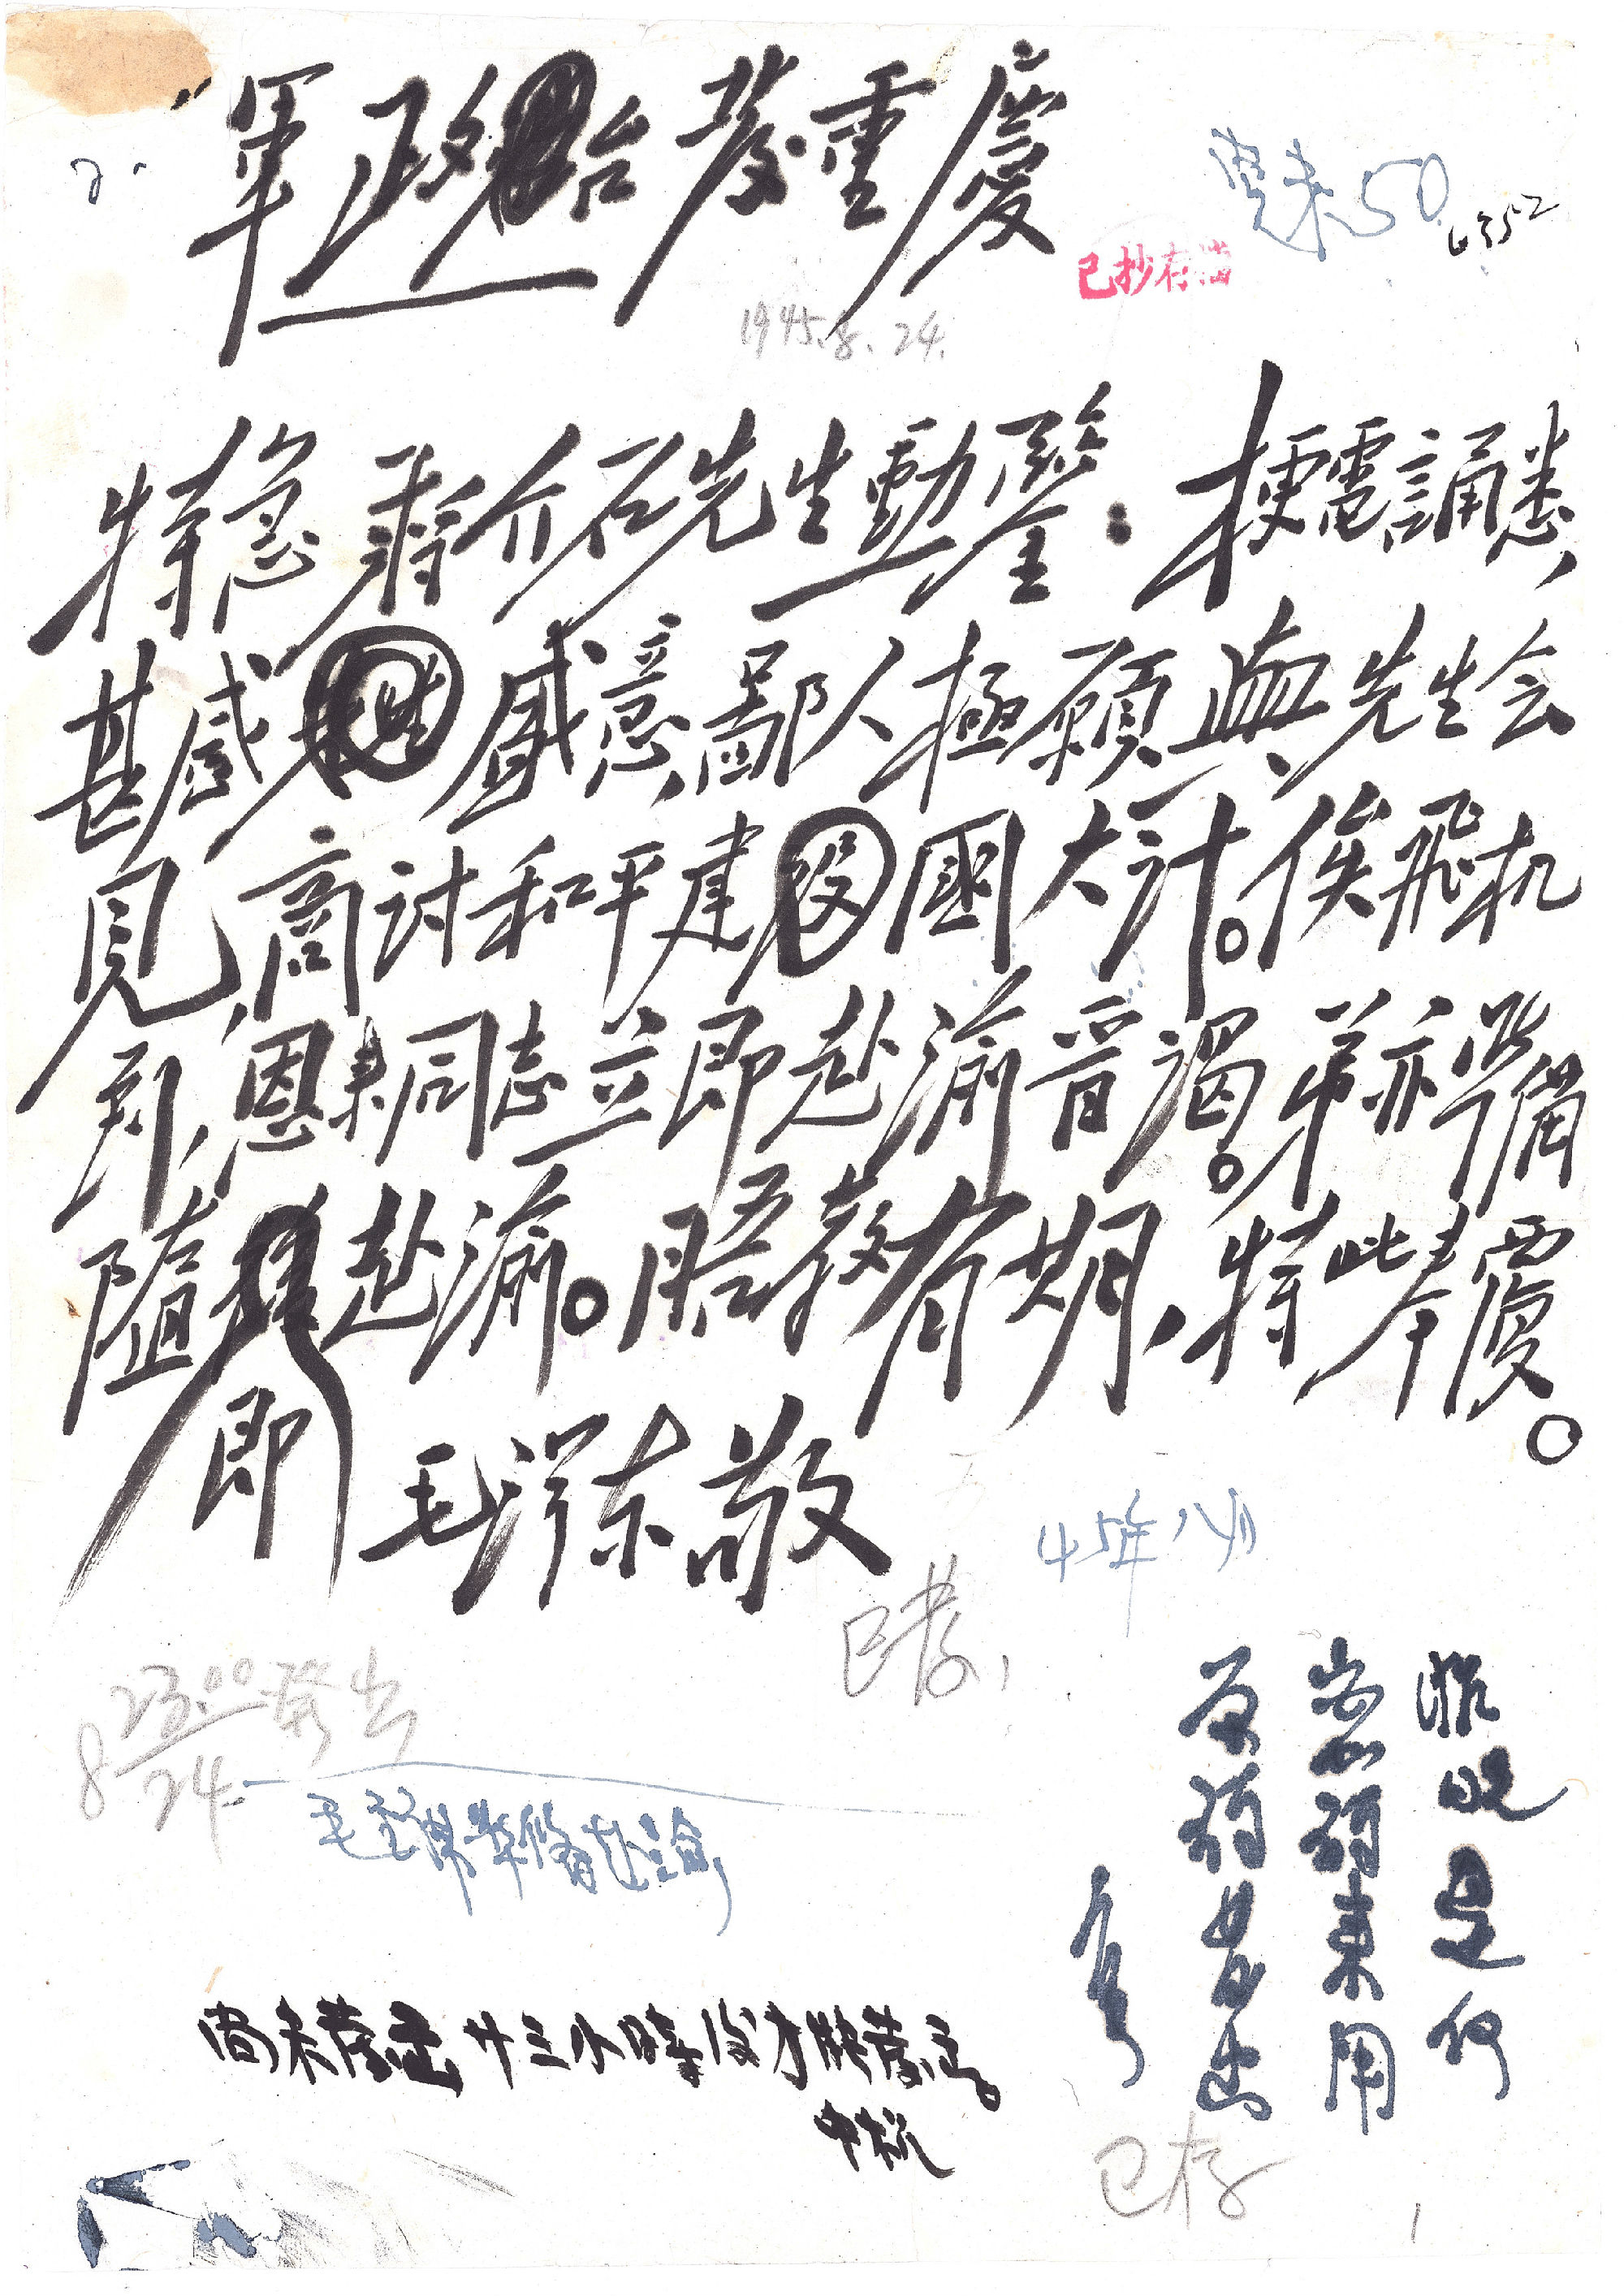 軍政台發重慶
50
6352
已抄存
1945.8.24.
特急 蔣介石先生勳鑒：梗電誦悉，
甚感盛意，鄙人極願與先生会
見，商討和平建國大计。俟飛机
到，恩来同志立即赴渝晋谒。弟亦準備
随即赴渝。晤教有期，特此奉覆。
毛泽东 敬
45年八月
已發，
23.00發出
8/24.
毛泽東準備赴渝
收呢是何
密碼来用
原碼发出
尚未發出 廿三小時後才能發出。
中机
已存